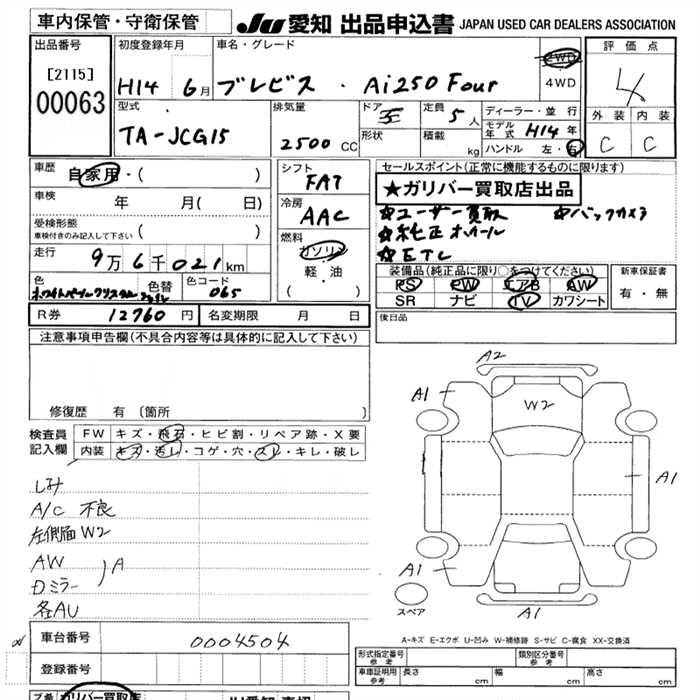 車内保管・守衛保管
JU 愛知 出品申込書 JAPAN USED CAR DEALERS ASSOCIATION
出品番号
[2115]
00063
初度登録年月
H14 6月
車名・グレード
ブレビス ・ Ai250 Four
2WD
4WD
評価点
4
外装 内装
C C
型式
TA-JCG15
排気量
2500 CC
ドア
形状
定員
5人
積載
kg
ディーラー・並行
モデル年式 H14年
ハンドル 左・右
車歴
自家用・( )
車検
年 月( 日)
受検形態
車検付きのみ記入して下さい ( )
走行
9万6千021km
色
ホワイトパールクリスタル
色替
色コード
065
シフト
FAT
冷房
AAC
燃料
ガソリン
軽・油
( )
セールスポイント(正常に機能するものに限ります)
★ガリバー買取店出品
★ユーザー買取 ★バックカメラ
★純正ホイール
★ETC
装備品(純正品に限り○をつけてください)
PS PW エアB AW
SR ナビ TV カワシート
新車保証書
有・無
R券 12760円
名変期限 月 日
後日品
注意事項申告欄(不具合内容等は具体的に記入して下さい)
修復歴 有(箇所 )
検査員記入欄
FW キズ・飛石・ヒビ割・リペア跡・X要
内装 キズ・汚レ・コゲ・穴・スレ・キレ・破レ
しみ
A/C 不良
左側面W2
AW
Dミラー
A
各AU
A2
A1
W2
A1
A1
A1
スペア
A-キズ E-エクボ U-凹み W-補修跡 S-サビ C-腐食 XX-交換済
車台番号 0004504
登録番号
形式指定番号
参考
類別区分番号
参考
車庫証明用
参考
長さ cm 幅 cm 高さ cm
ガリバー買取店
JU愛知